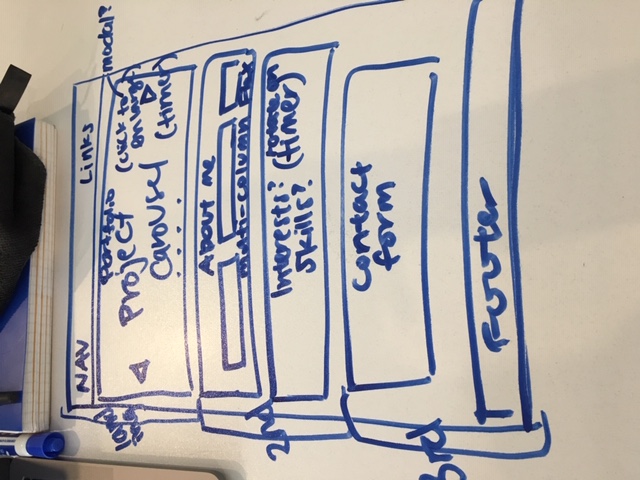 NAV Links
landing
Portfolio
Project
Carousel
(click to
enlarge)
modal?
(timer)
2nd
About me
multi-column Flex
Interests?
Skills?
(rotate on
timer)
3rd
contact
form
Footer